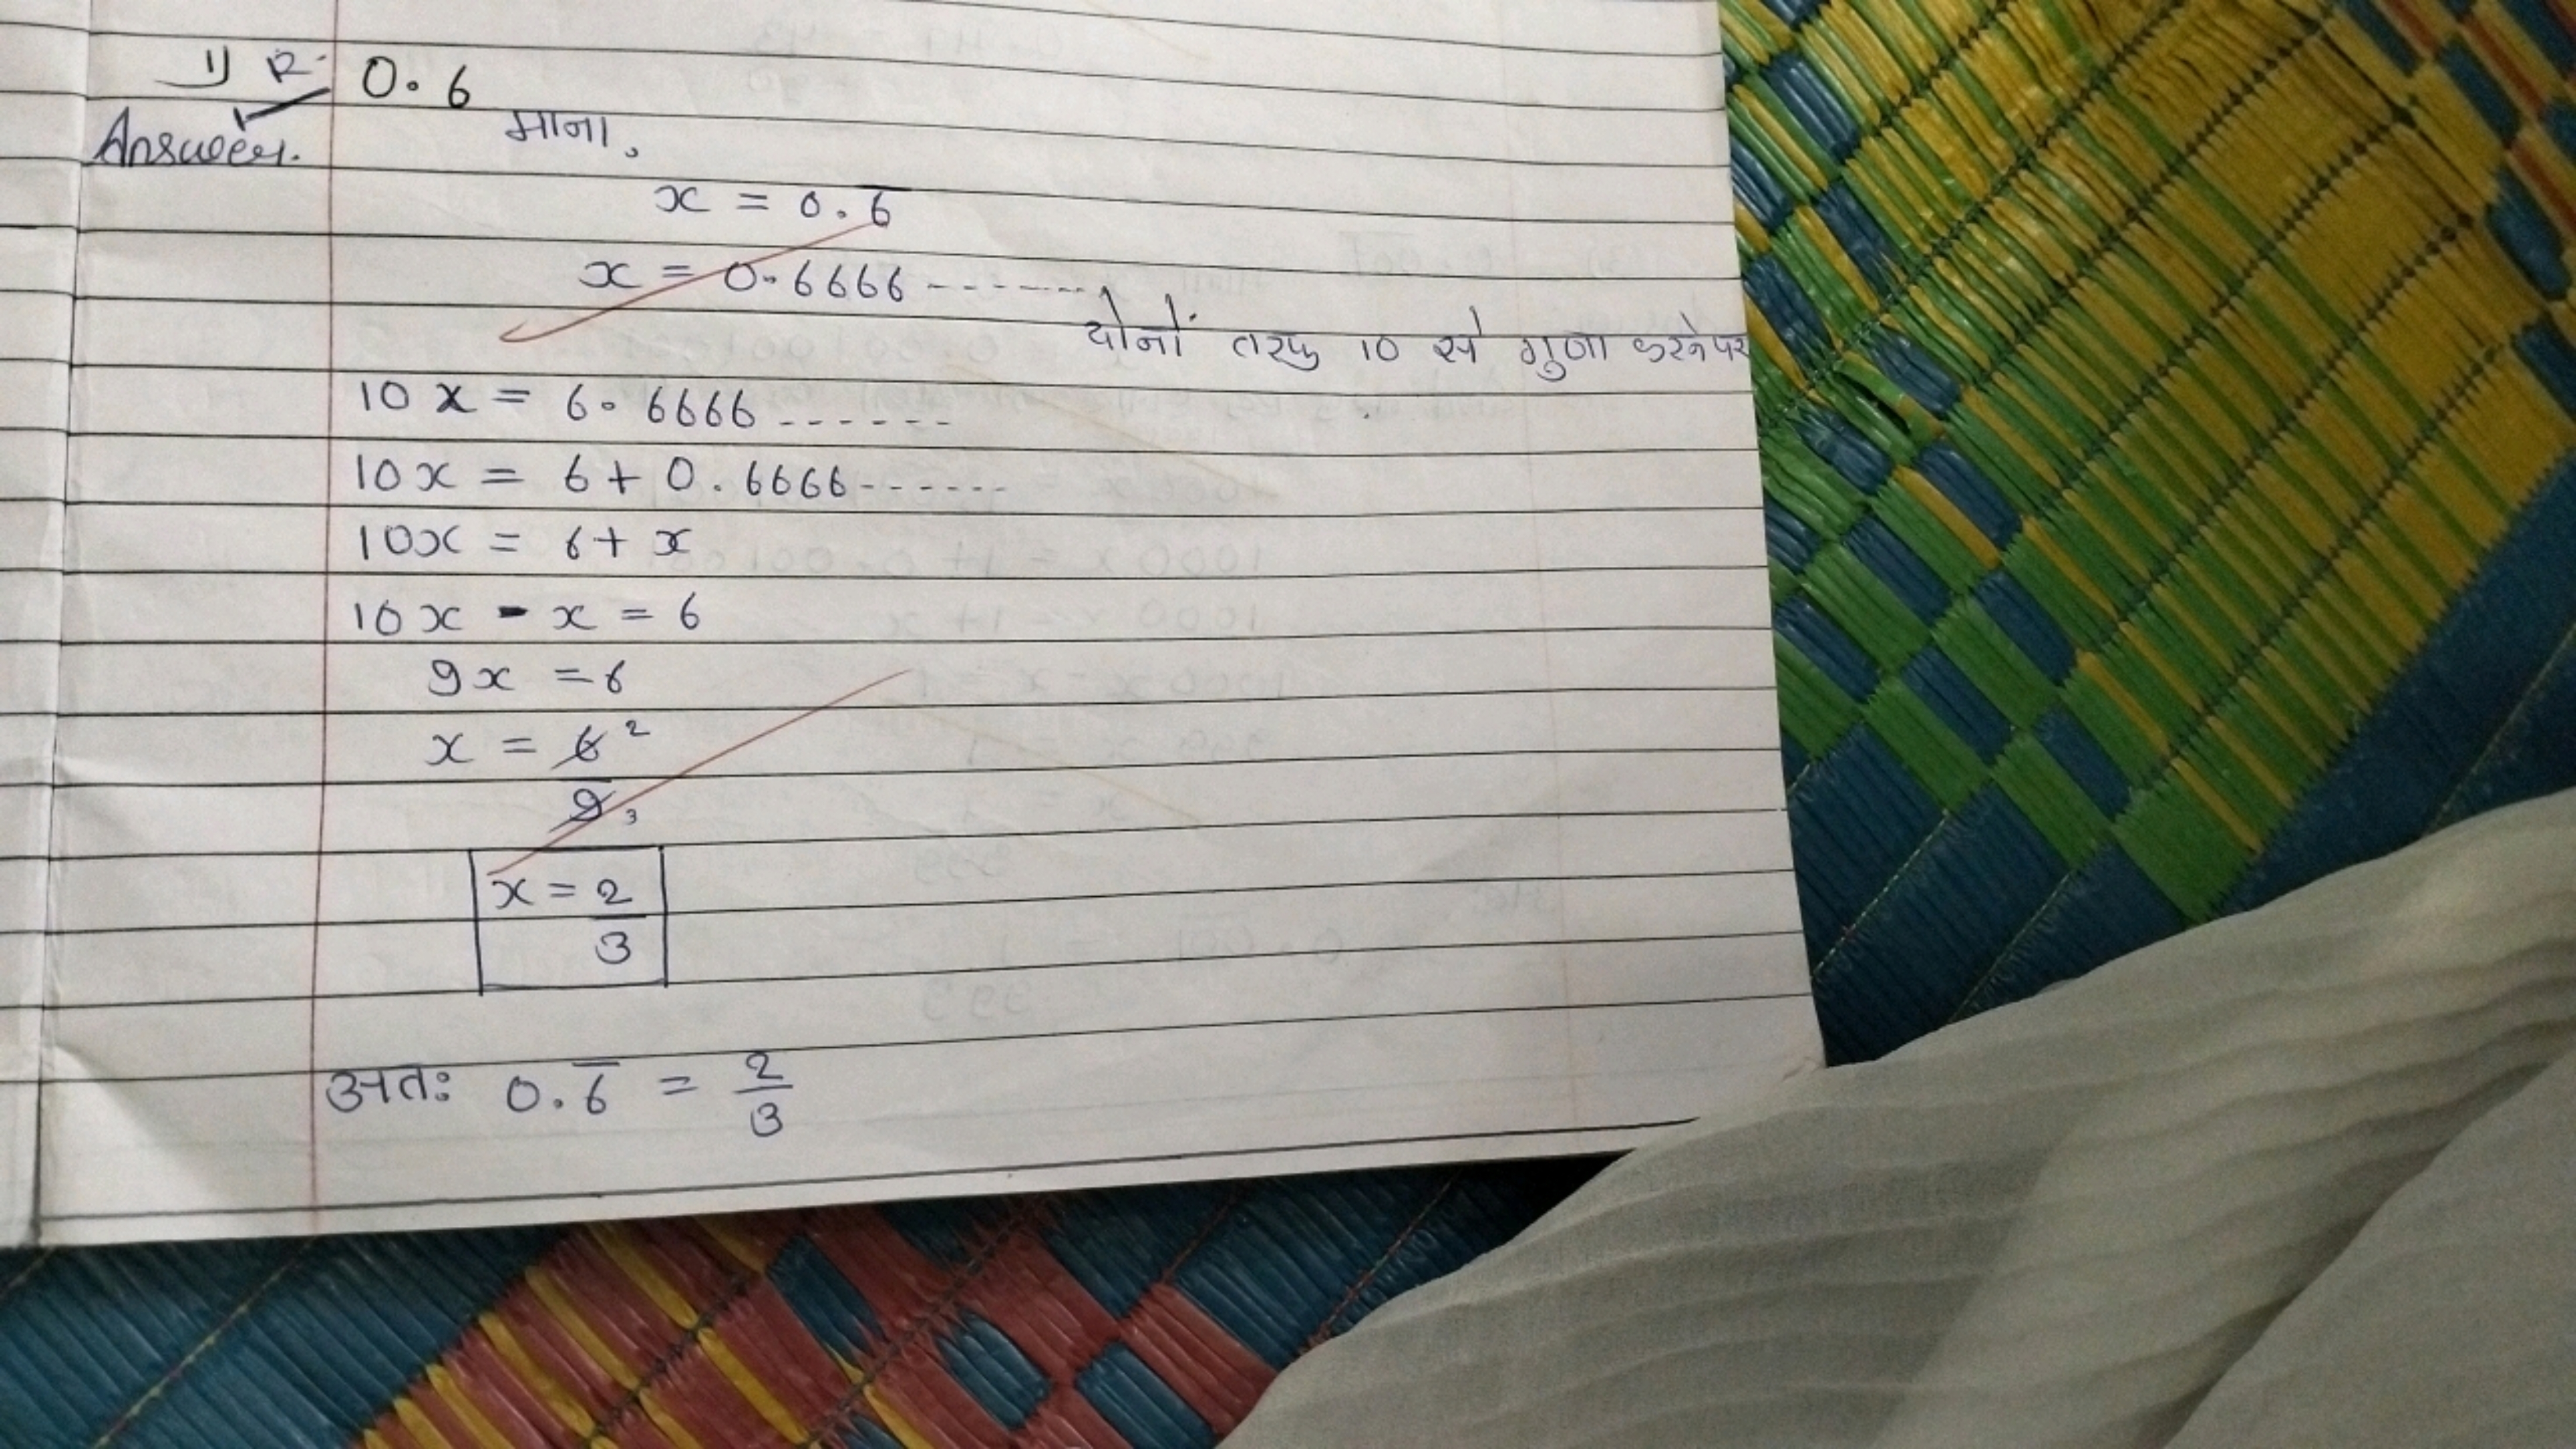 1) R. 0.6
Answer.
माना,
x = 0.6̅
x = 0.6666-------
दोनों तरफ 10 से गुणा करने पर
10x = 6.6666------
10x = 6+0.6666------
10x = 6+x
10x - x = 6
9x = 6
x = 6 2
9 3
x = 2
3
अतः 0.6̅ = 2/3